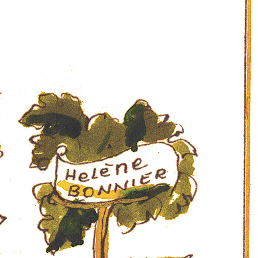 Helène
BONNIER